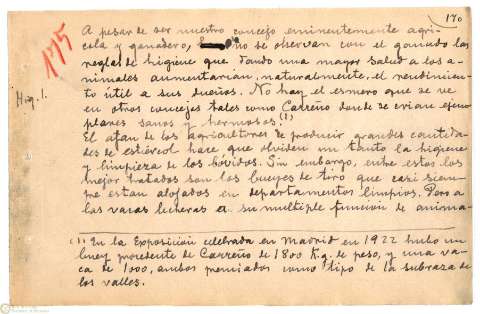 170
175
Hig. 1.
A pesar de ser nuestro concejo eminentemente agrí-
cola y ganadero, no se observan con el ganado las
reglas de higiene que, dando una mayor salud a los a-
nimales aumentarían, naturalmente, el rendimien-
to útil a sus dueños. No hay el esmero que se ve
en otros concejos tales como Carreño donde se crian ejem-
plares sanos y hermosos.(1)
El afan de los agricultores de producir grandes cantida-
des de estiércol hace que olviden un tanto la higiene
y limpieza de los bóvidos. Sin embargo, entre estos los
mejor tratados son los bueyes de tiro que casi siem-
pre estan alojados en departamentos limpios. Pero a
las vacas lecheras a su multiple función de anima-
(1) En la Exposición celebrada en Madrid en 1922 hubo un
buey procedente de Carreño de 1800 Kg. de peso, y una va-
ca de 1000, ambos premiados como tipo de la subraza de
los valles.